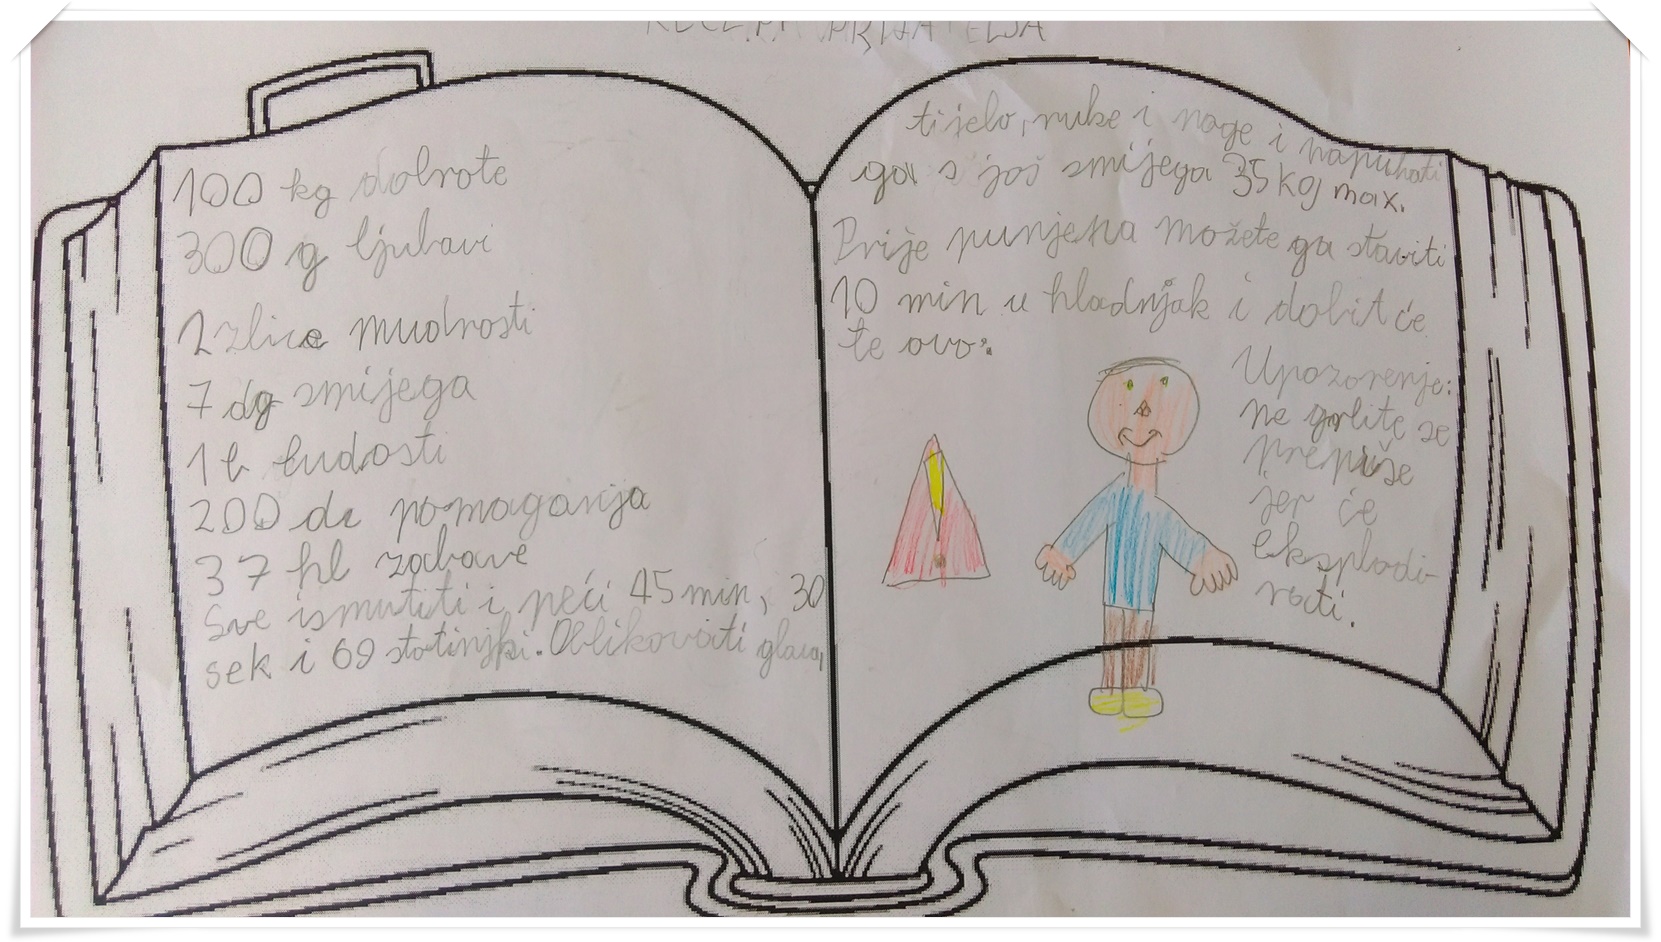 RECEPT PRIJATELJA
100 kg dobrote
300 g ljubavi
2 žlice mudrosti
7 dg smijega
1 l ludosti
200 dl pomaganja
37 hl zabave
Sve ismutiti i peći 45 min, 30
sek i 69 stotinjki. Oblikovati glavu,
tijelo, ruke i noge i napuhati
ga s još smijega 35 kg max.
Prije punjena možete ga staviti
10 min u hladnjak i dobit će
te ovo:
Upozorenje:
ne grlite se
prepuše
jer će
eksplodi-
rati.